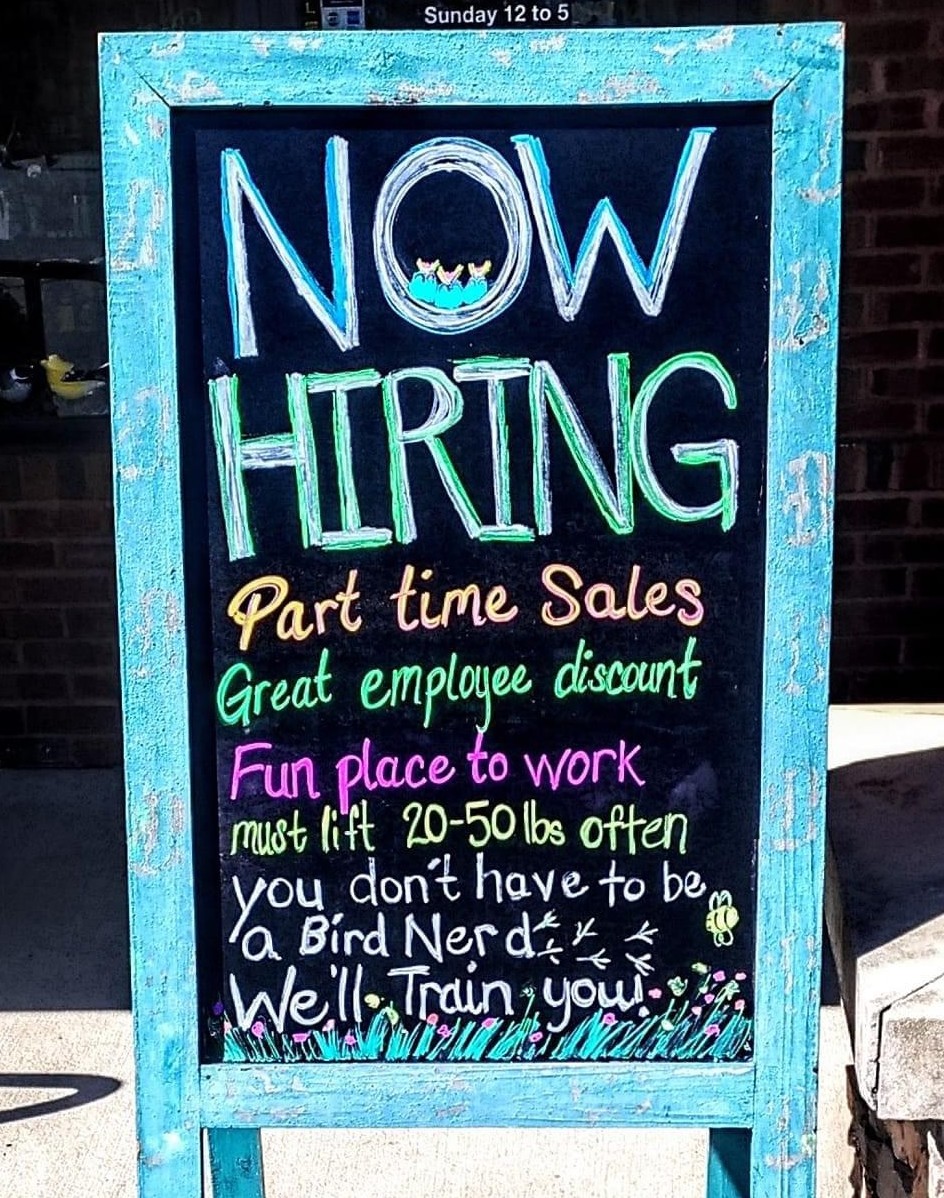 Sunday 12 to 5
NOW
HIRING
Part time Sales
Great employee discount
Fun place to work
must lift 20-50 lbs often
you don't have to be
a Bird Nerd
We'll Train you!